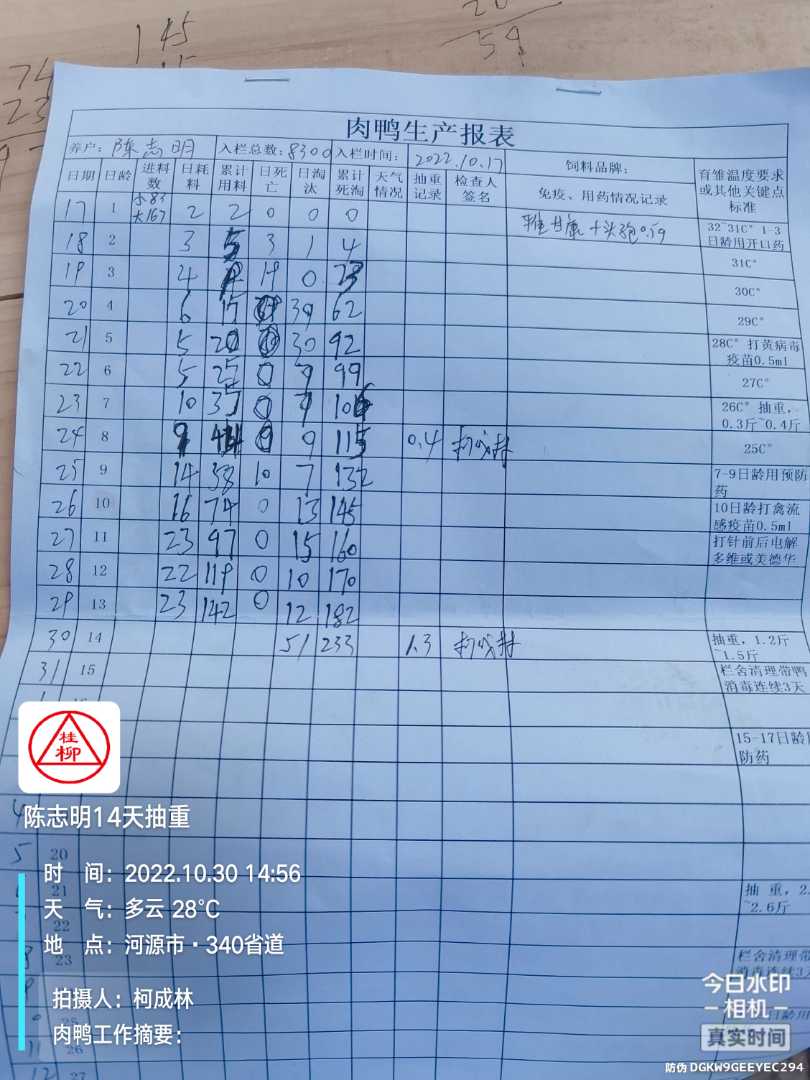 145
20
59
74
23
肉鸭生产报表
养户: 陈志明 入栏总数: 8300 入栏时间: 2022.10.17 饲料品牌:
日期 日龄 进料数 日耗料 累计用料 日死亡 日淘汰 累计死淘 天气情况 抽重记录 检查人签名 免疫、用药情况记录 育雏温度要求或其他关键点标准
17 1 大167 2 2 0 0 0 32~31C° 1-3日龄用开口药
18 2 3 5 3 1 4 31C°
19 3 4 19 0 23 30C°
20 4 6 15 39 62 29C°
21 5 5 20 30 92 28C° 打黄病毒疫苗0.5ml
22 6 5 25 0 7 99 27C°
23 7 10 35 0 7 106 26C° 抽重，0.3斤~0.4斤
24 8 9 44 0 9 115 0.4 25C°
25 9 14 58 10 7 132 7-9日龄用预防药
26 10 16 74 0 13 145 10日龄打禽流感疫苗0.5ml
27 11 23 97 0 15 160 打针前后电解多维或美德华
28 12 22 119 0 10 170
29 13 23 142 0 12 182
30 14 51 233 1.3 抽重，1.2斤~1.5斤
31 15 栏舍清理带鸭消毒连续3天
1
15-17日龄
防药
桂柳
陈志明14天抽重
4
5 20
时 间: 2022.10.30 14:56
21 抽重，2.
~2.6斤
天 气: 多云 28°C
22
地 点: 河源市·340省道
23 栏舍清理带
拍摄人: 柯成林
肉鸭工作摘要:
11 26
12 27
今日水印
相机
真实时间
防伪 DGKW9GEEYEC294